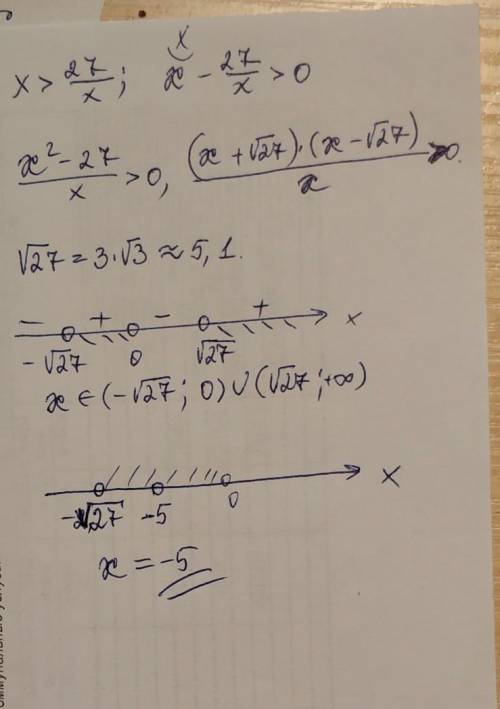 x > 27/x ; x⁀(x) - 27/x > 0
(x² - 27)/x > 0, ((x + √27)·(x - √27))/x > 0.
√27 = 3·√3 ≈ 5,1.
− + − +
-√27 0 √27 x
x ∈ (-√27; 0) ∪ (√27; +∞)
-√27 -5 0 x
x = -5